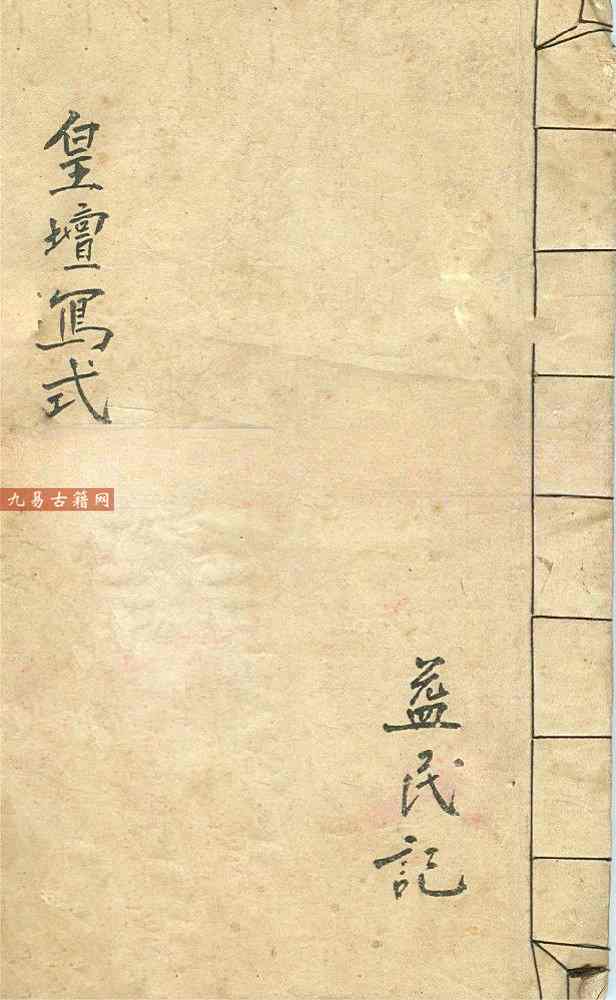 皇壇寫式
益民記
九易古籍网